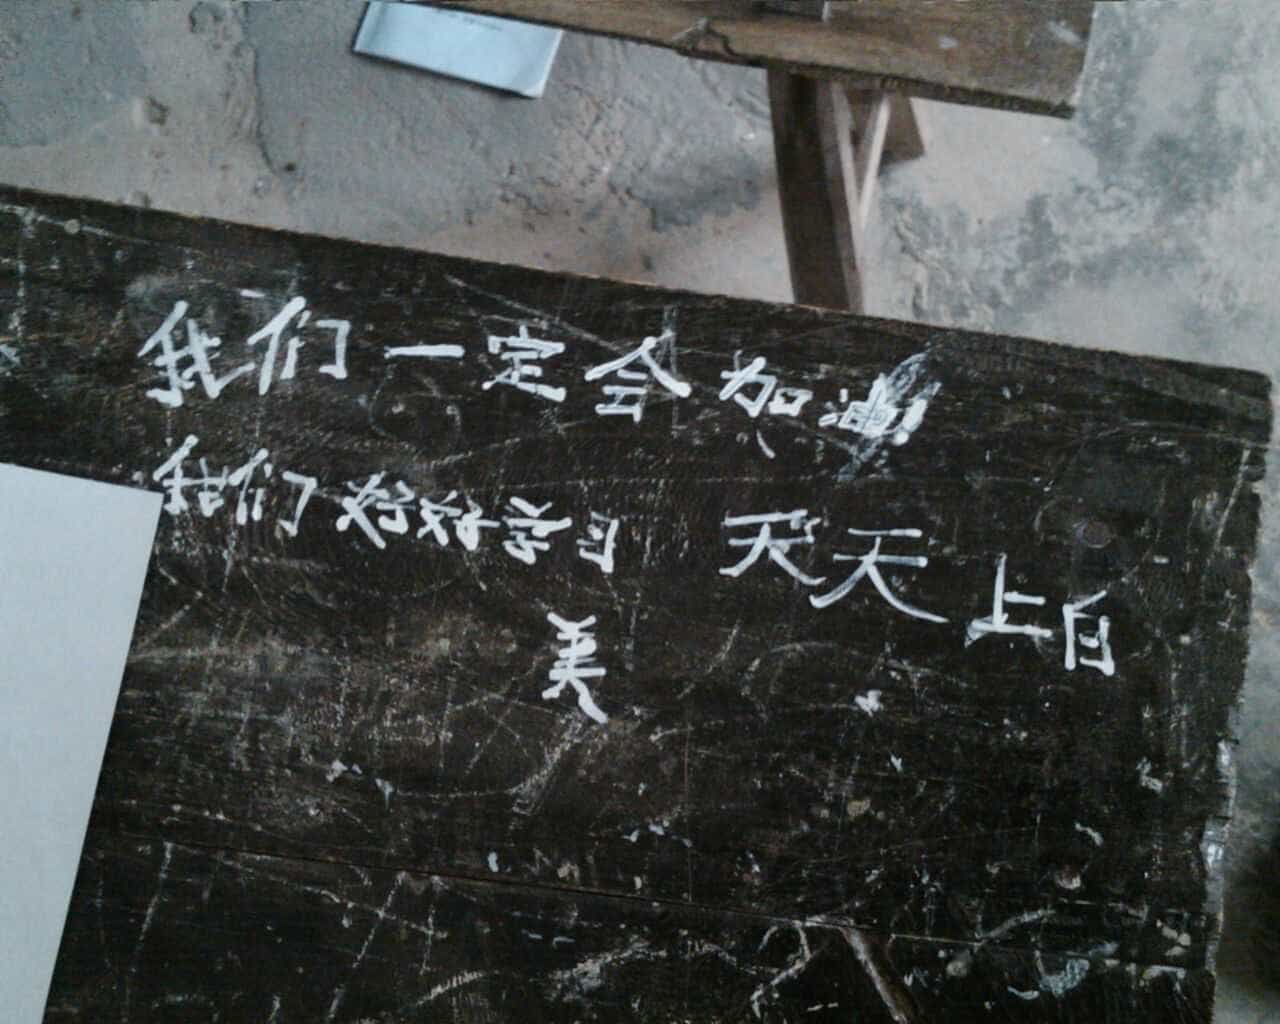 我们一定会加油!
我们好好学习 天天上白
美